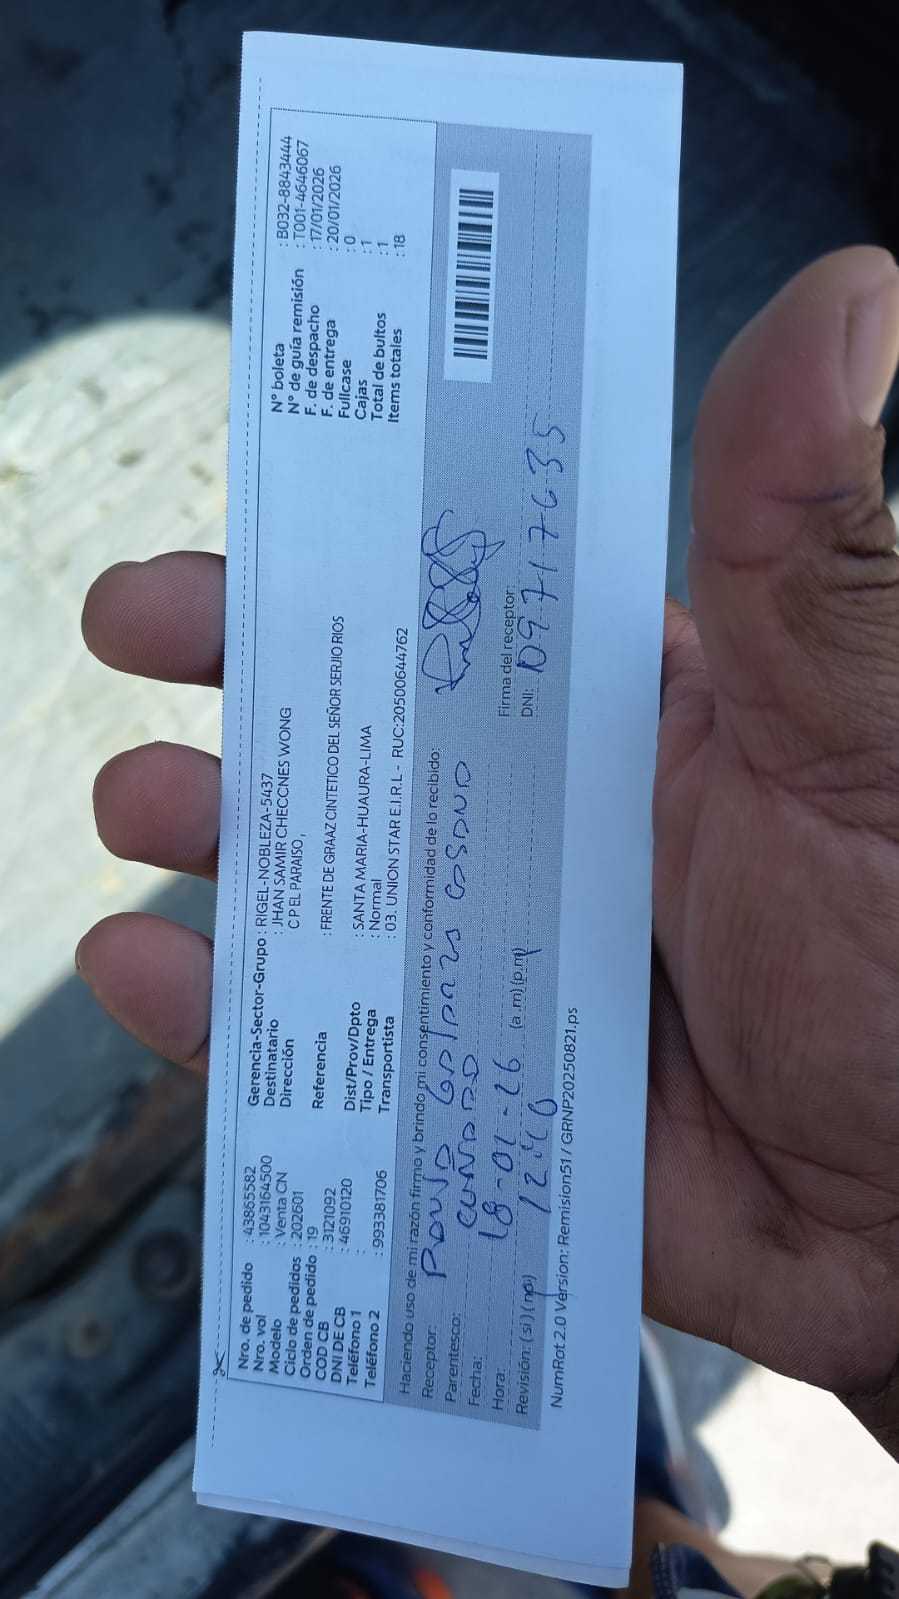 Nro. de pedido : 43865582
Nro. vol : 1043164500
Modelo : Venta CN
Ciclo de pedidos : 202601
Orden de pedido : 19
COD CB : 3121092
DNI DE CB : 46910120
Teléfono 1 :
Teléfono 2 : 993381706
Gerencia-Sector-Grupo : RIGEL-NOBLEZA-5437
Destinatario : JHAN SAMIR CHECCNES WONG
Dirección C P EL PARAISO ,
Referencia : FRENTE DE GRAAZ CINTETICO DEL SEÑOR SERJIO RIOS
Dist/Prov/Dpto : SANTA MARIA-HUAURA-LIMA
Tipo / Entrega : Normal
Transportista : 03. UNION STAR E.I.R.L - RUC:20500644762
N° boleta : B032-8843444
N° de guía remisión : T001-4646067
F. de despacho : 17/01/2026
F. de entrega : 20/01/2026
Fullcase : 0
Cajas : 1
Total de bultos : 1
Items totales : 18
Haciendo uso de mi razón firmo y brindo mi consentimiento y conformidad de lo recibido:
Receptor:
Parentesco: CUÑADO
Fecha: 18-01-26
Hora: 12:40 (a.m) (p.m)
Revisión: (si) (no)
Firma del receptor:
DNI:
NumRot 2.0 Version: Remision51 / GRNP20250821.ps